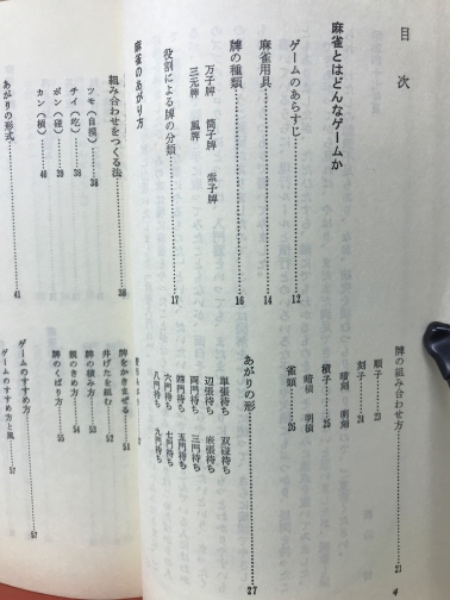 目次
麻雀とはどんなゲームか
ゲームのあらすじ……12
麻雀用具……14
牌の種類……16
万子牌 筒子牌 索子牌
三元牌 風牌
役割による牌の分類……17
牌の組み合わせ方……21
順子……23
刻子……24
暗刻 明刻
槓子……25
暗槓 明槓
雀頭……26
あがりの形……27
単張待ち 双碰待ち
辺張待ち 嵌張待ち
両門待ち 三門待ち
四門待ち 五門待ち
六門待ち 七門待ち
八門待ち 九門待ち
4
麻雀のあがり方
組み合わせをつくる法……38
ツモ(自摸)……38
チイ(吃)……38
ポン(碰)……39
カン(槓)……40
あがりの形式……41
牌をかきまぜる……51
井げたを組む……52
牌の積み方……53
親のきめ方……54
牌のくばり方……55
ゲームのすすめ方……57
ゲームのすすめ方と風……57